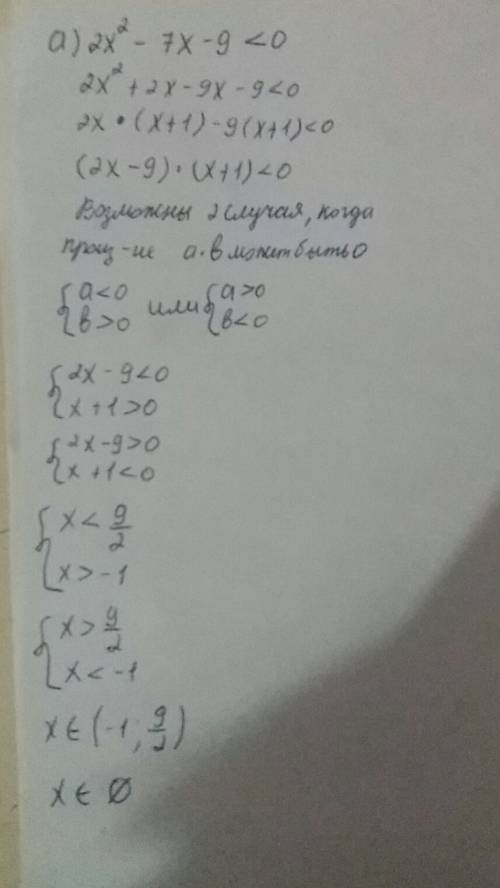 а) 2x² - 7x - 9 < 0
2x² + 2x - 9x - 9 < 0
2x • (x+1) - 9(x+1) < 0
(2x - 9) • (x+1) < 0
Возможны 2 случая, когда
произ-ие a•b может быть 0
{a<0 или {a>0
{b>0 {b<0
{2x - 9 < 0
{x + 1 > 0
{2x - 9 > 0
{x + 1 < 0
{x < 9/2
{x > -1
{x > 9/2
{x < -1
x ∈ (-1; 9/2)
x ∈ ∅